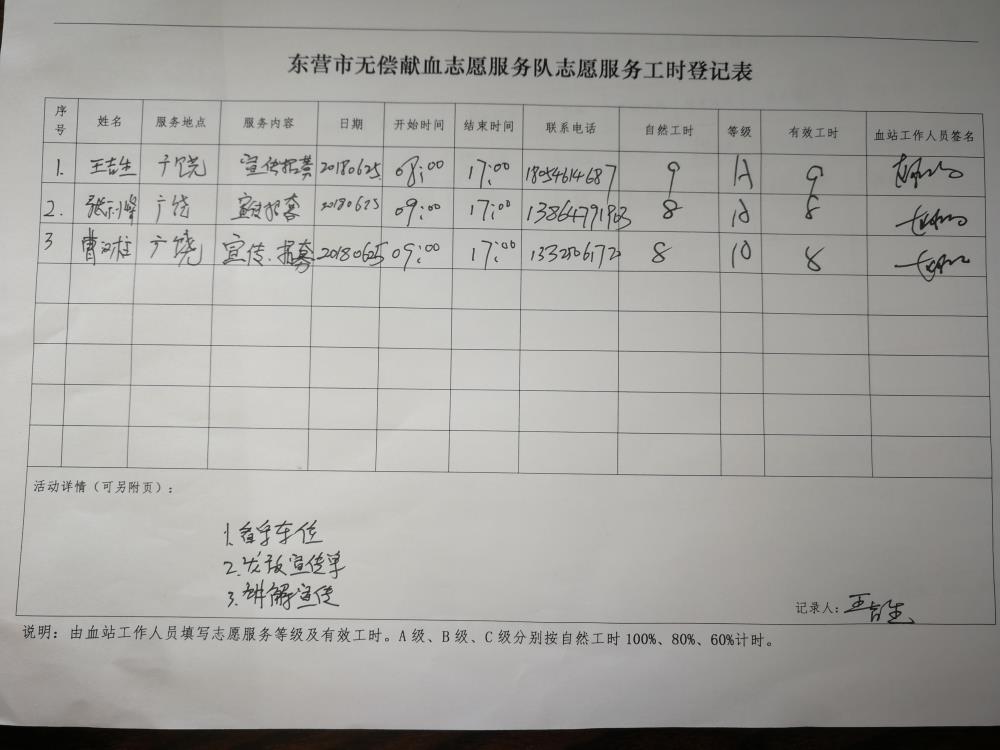 东营市无偿献血志愿服务队志愿服务工时登记表
序号 姓名 服务地点 服务内容 日期 开始时间 结束时间 联系电话 自然工时 等级 有效工时 血站工作人员签名
1. 王吉生 广饶 宣传招募 20180625 08:00 17:00 18054614687 9 A 9
2. 广饶 宣传招募 20180625 09:00 17:00 8 A 8
3 曹 广饶 宣传、招募 20180625 09:00 17:00 8 8
活动详情（可另附页）：
1. 车位
2. 发放宣传单
3. 讲解宣传
记录人：王吉生
说明：由血站工作人员填写志愿服务等级及有效工时。A级、B级、C级分别按自然工时100%、80%、60%计时。